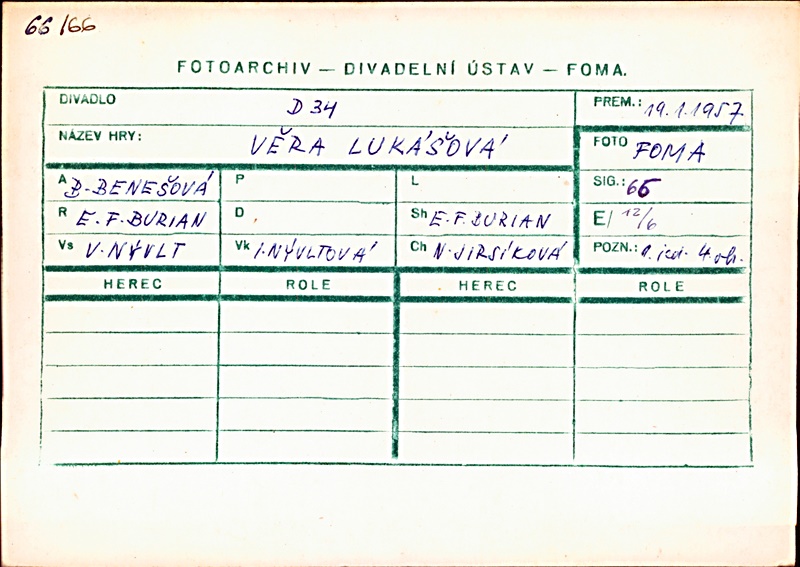 66/66
FOTOARCHIV — DIVADELNÍ ÚSTAV — FOMA.
DIVADLO D 34 PREM.: 19.1.1957
NÁZEV HRY: VĚRA LUKÁŠOVÁ FOTO FOMA
A B. BENEŠOVÁ P L SIG.: 66
R E. F. BURIAN D Sh E. F. BURIAN E/ 12/6
Vs V. NÝVLT Vk I. NÝVLTOVÁ Ch N. JIRSÍKOVÁ POZN.: 1. jed. 4. ob.
HEREC ROLE HEREC ROLE